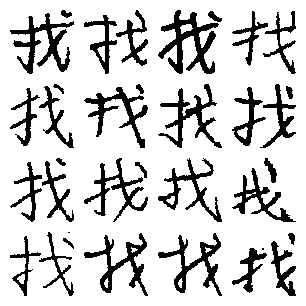 找找找找
找找找找
找找找找
找找找找